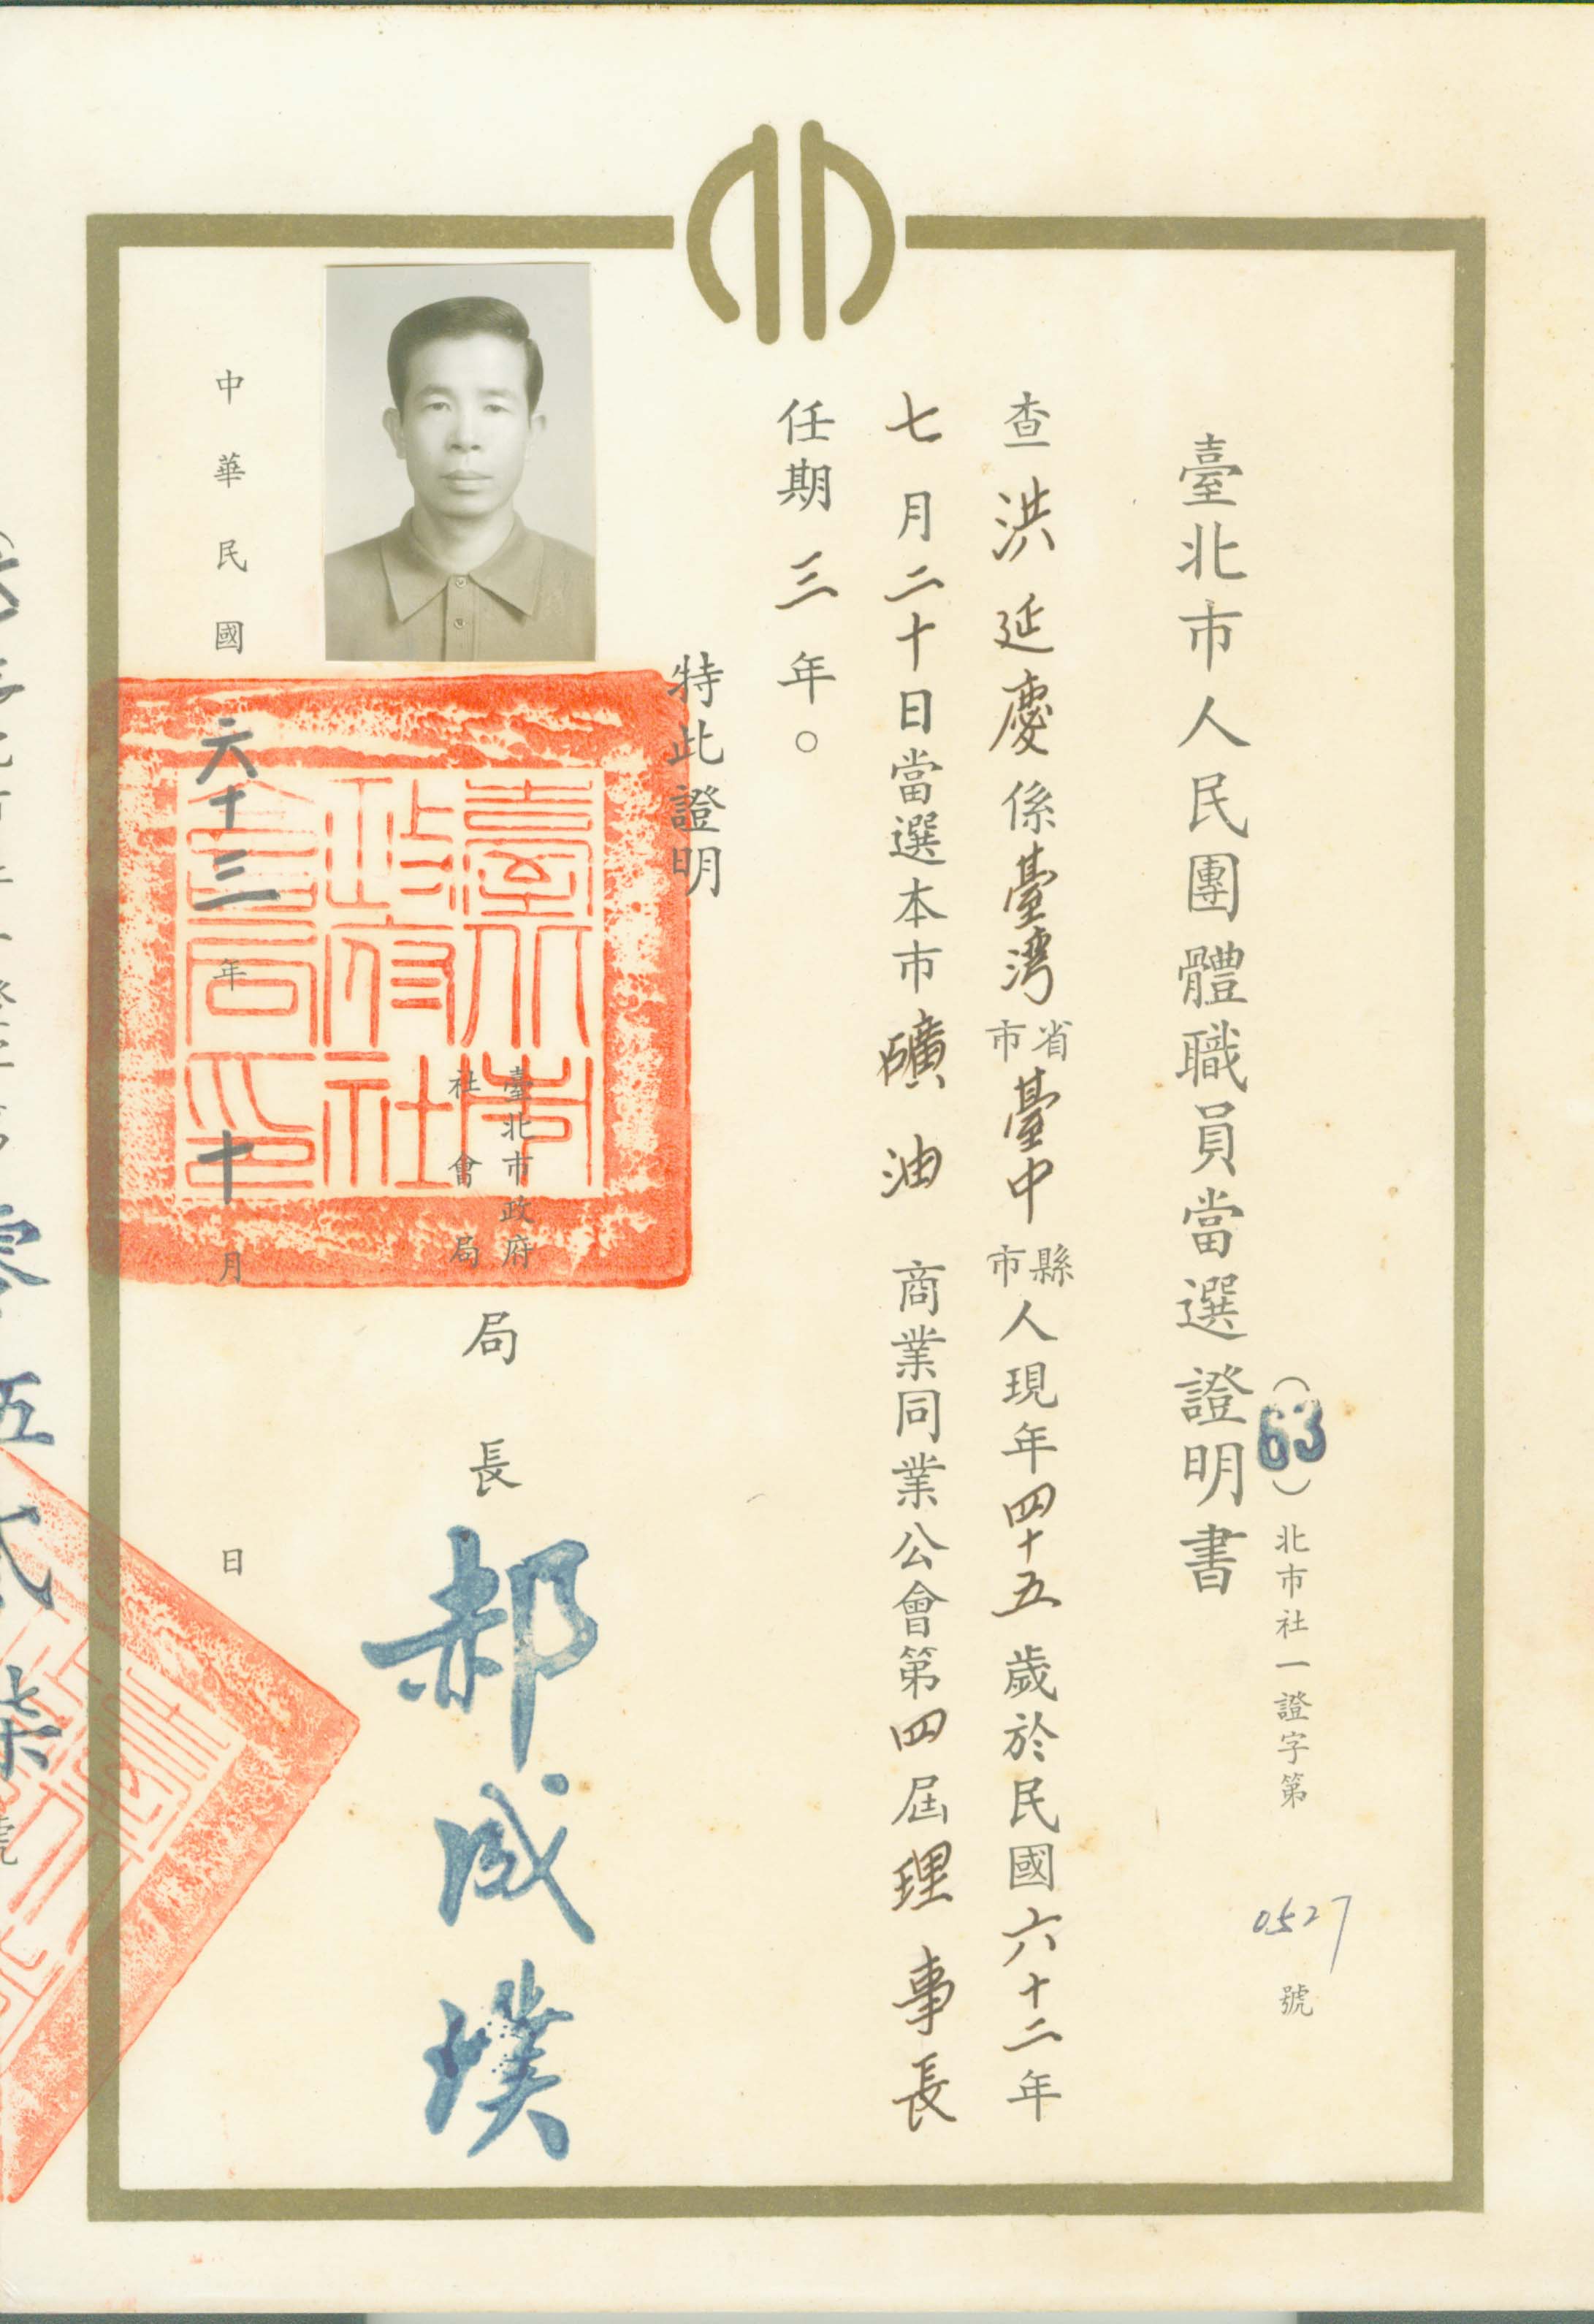 臺北市人民團體職員當選證明書
(63)北市社一證字第0527號
查洪延慶係臺灣省市臺中縣市人現年四十五歲於民國六十二年
七月二十日當選本市礦油商業同業公會第四屆理事長
任期三年。
特此證明
臺北市政府
社會局
局長郝成璞
臺北市
政府社
會局印
中華民國六十三年十月日
零伍貳柒號